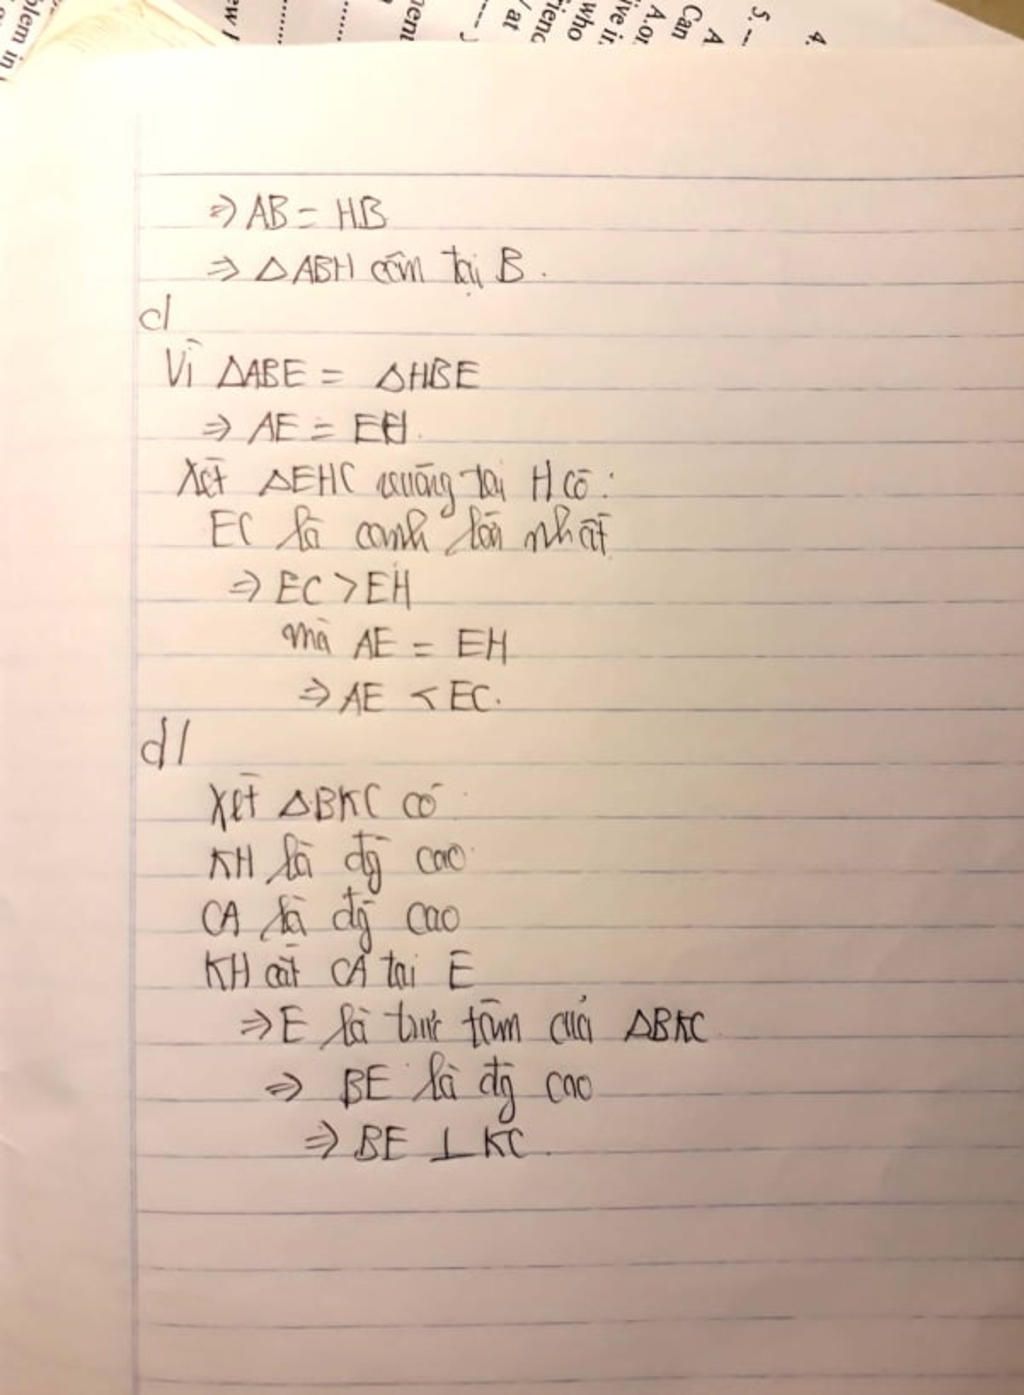 blem in
ew
4.
5. --
A
Can
A.or
ive it.
who
rienc
/ at
⇒ AB = HB
⇒ △ABH cân tại B.
c/
Vì △ABE = △HBE
⇒ AE = EH.
Xét △EHC vuông tại H có:
EC là cạnh lớn nhất
⇒ EC > EH
mà AE = EH
⇒ AE < EC.
d/
Xét △BKC có
KH là đg cao
CA là đg cao
KH cắt CA tại E
⇒ E là trực tâm của △BKC
⇒ BE là đg cao
⇒ BE ⊥ KC.